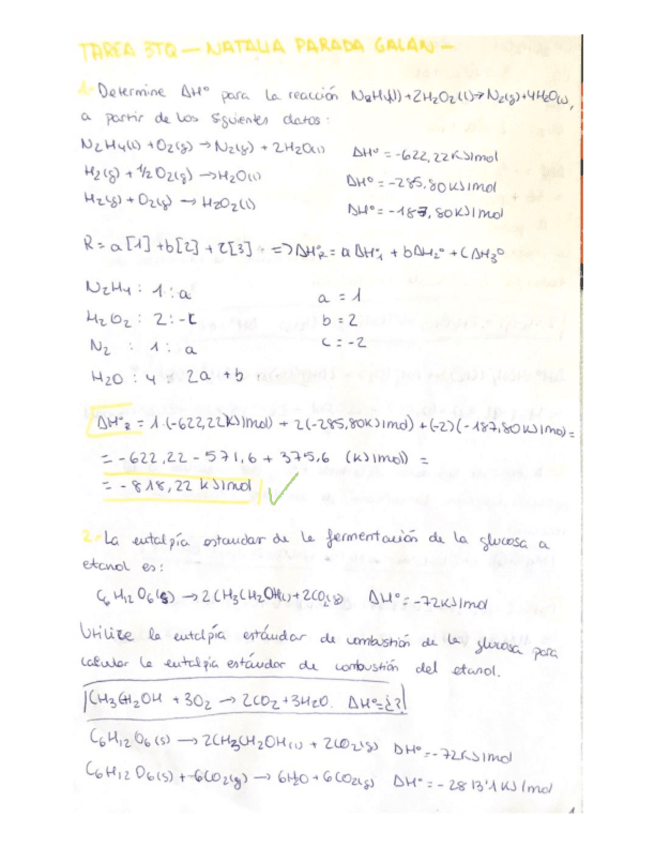 TAREA 3TQ — NATALIA PARADA GALAN —
1- Determine ΔHº para la reacción N2H4(l)+2H2O2(l)→N2(g)+4H2O(l),
a partir de los siguientes datos:
N2H4(l) + O2(g) → N2(g) + 2H2O(l) ΔHº = -622,22KJ/mol
H2(g) + 1/2 O2(g) → H2O(l) ΔHº = -285,80KJ/mol
H2(g) + O2(g) → H2O2(l) ΔHº = -187,80KJ/mol
R = a[1] + b[2] + c[3] => ΔHºR = aΔHº1 + bΔH2º + cΔH3º
N2H4 : 1 : a a = 1
H2O2 : 2 : -c b = 2
N2 : 1 : a c = -2
H2O : 4 : 2a + b
ΔHºR = 1·(-622,22KJ/mol) + 2(-285,80KJ/mol) + (-2)(-187,80KJ/mol) =
= -622,22 - 571,6 + 375,6 (KJ/mol) =
= -818,22 KJ/mol ✓
2- La entalpía estandar de la fermentación de la glucosa a
etanol es:
C6H12O6(s) → 2CH3CH2OH(l) + 2CO2(g) ΔHº = -72KJ/mol
Utilize la entalpía estándar de combustión de la glucosa para
calcular la entalpía estándar de combustión del etanol.
CH3CH2OH + 3O2 → 2CO2 + 3H2O. ΔHº = ¿?
C6H12O6(s) → 2CH3CH2OH(l) + 2CO2(g) ΔHº = -72KJ/mol
C6H12O6(s) + 6CO2(g) → 6H2O + 6CO2(g) ΔHº = -2813'1 KJ/mol